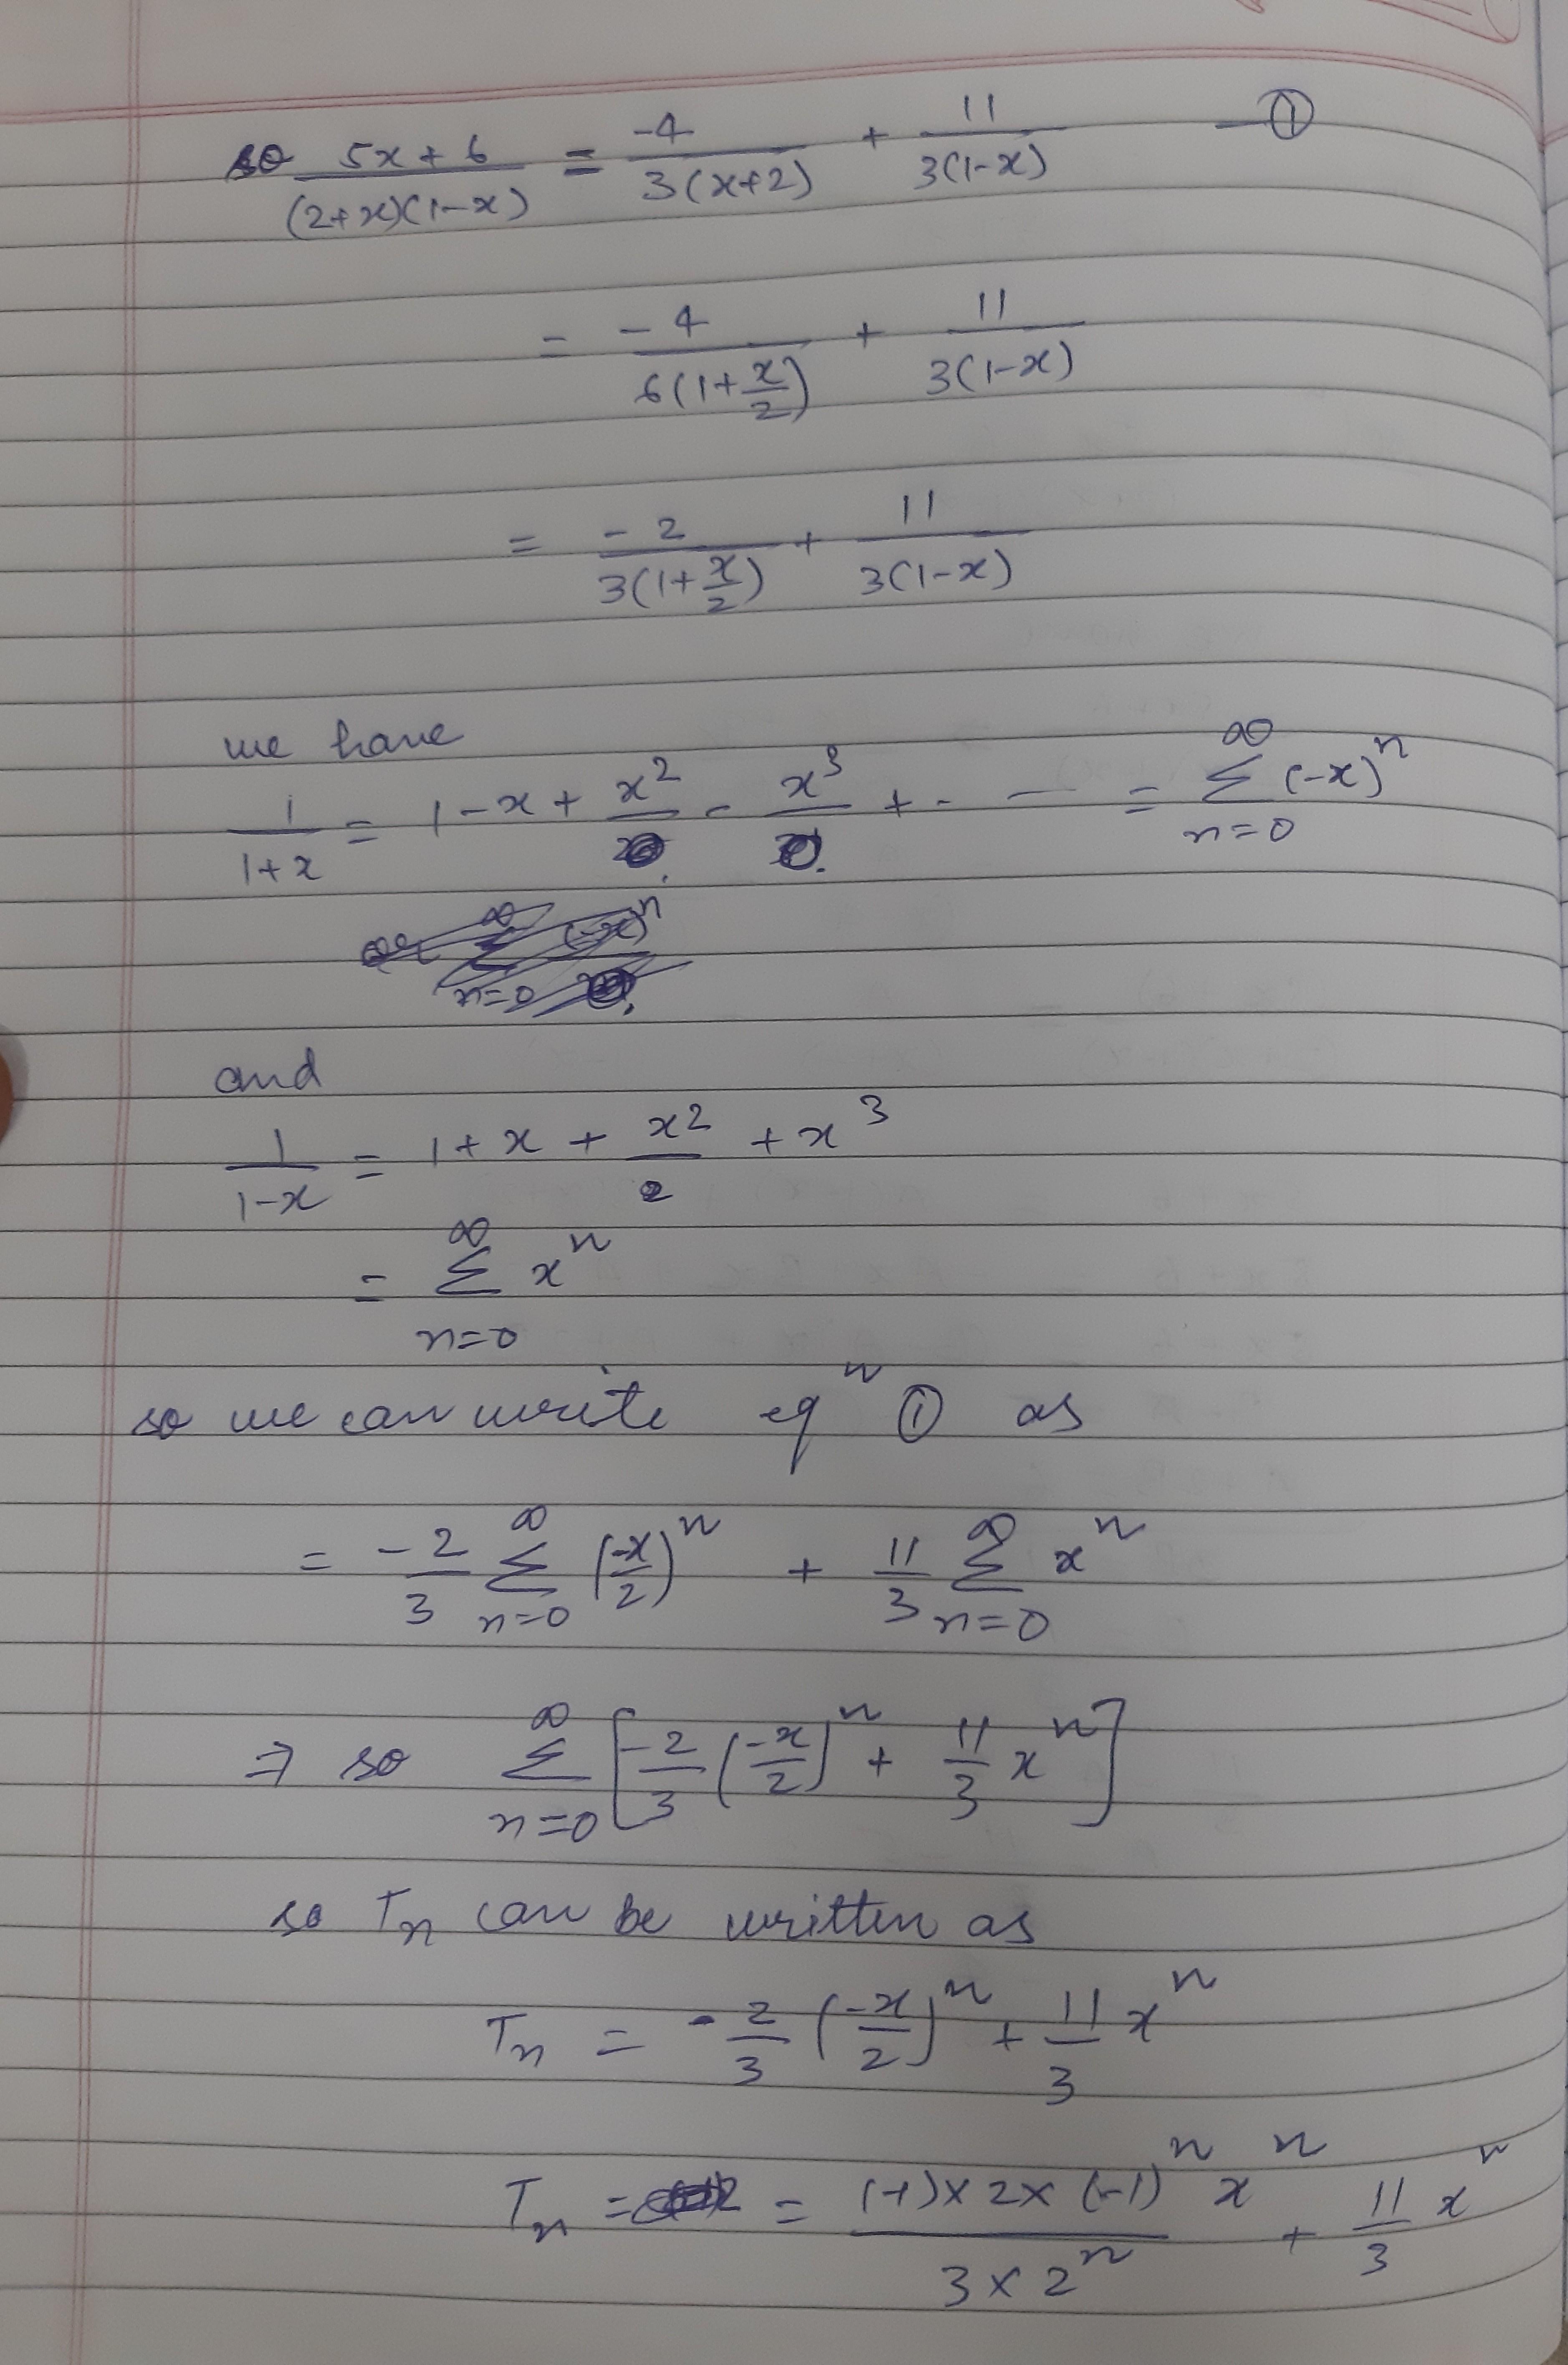 so (5x + 6)/((2+x)(1-x)) = -4/(3(x+2)) + 11/(3(1-x)) — ①
= -4/(6(1+x/2)) + 11/(3(1-x))
= -2/(3(1+x/2)) + 11/(3(1-x))
we have
1/(1+x) = 1 - x + x²/ - x³/ + - — = ∞Σn=0 (-x)ⁿ
and
1/(1-x) = 1 + x + x²/2 + x³
= ∞Σn=0 xⁿ
so we can write eqⁿ ① as
= -2/3 ∞Σn=0 (-x/2)ⁿ + 11/3 ∞Σn=0 xⁿ
⇒ so ∞Σn=0 [-2/3 (-x/2)ⁿ + 11/3 xⁿ]
so Tn can be written as
Tn = -2/3 (-x/2)ⁿ + 11/3 xⁿ
Tn = = ((-1) × 2 × (-1)ⁿ xⁿ)/(3 × 2ⁿ) + 11/3 xⁿ